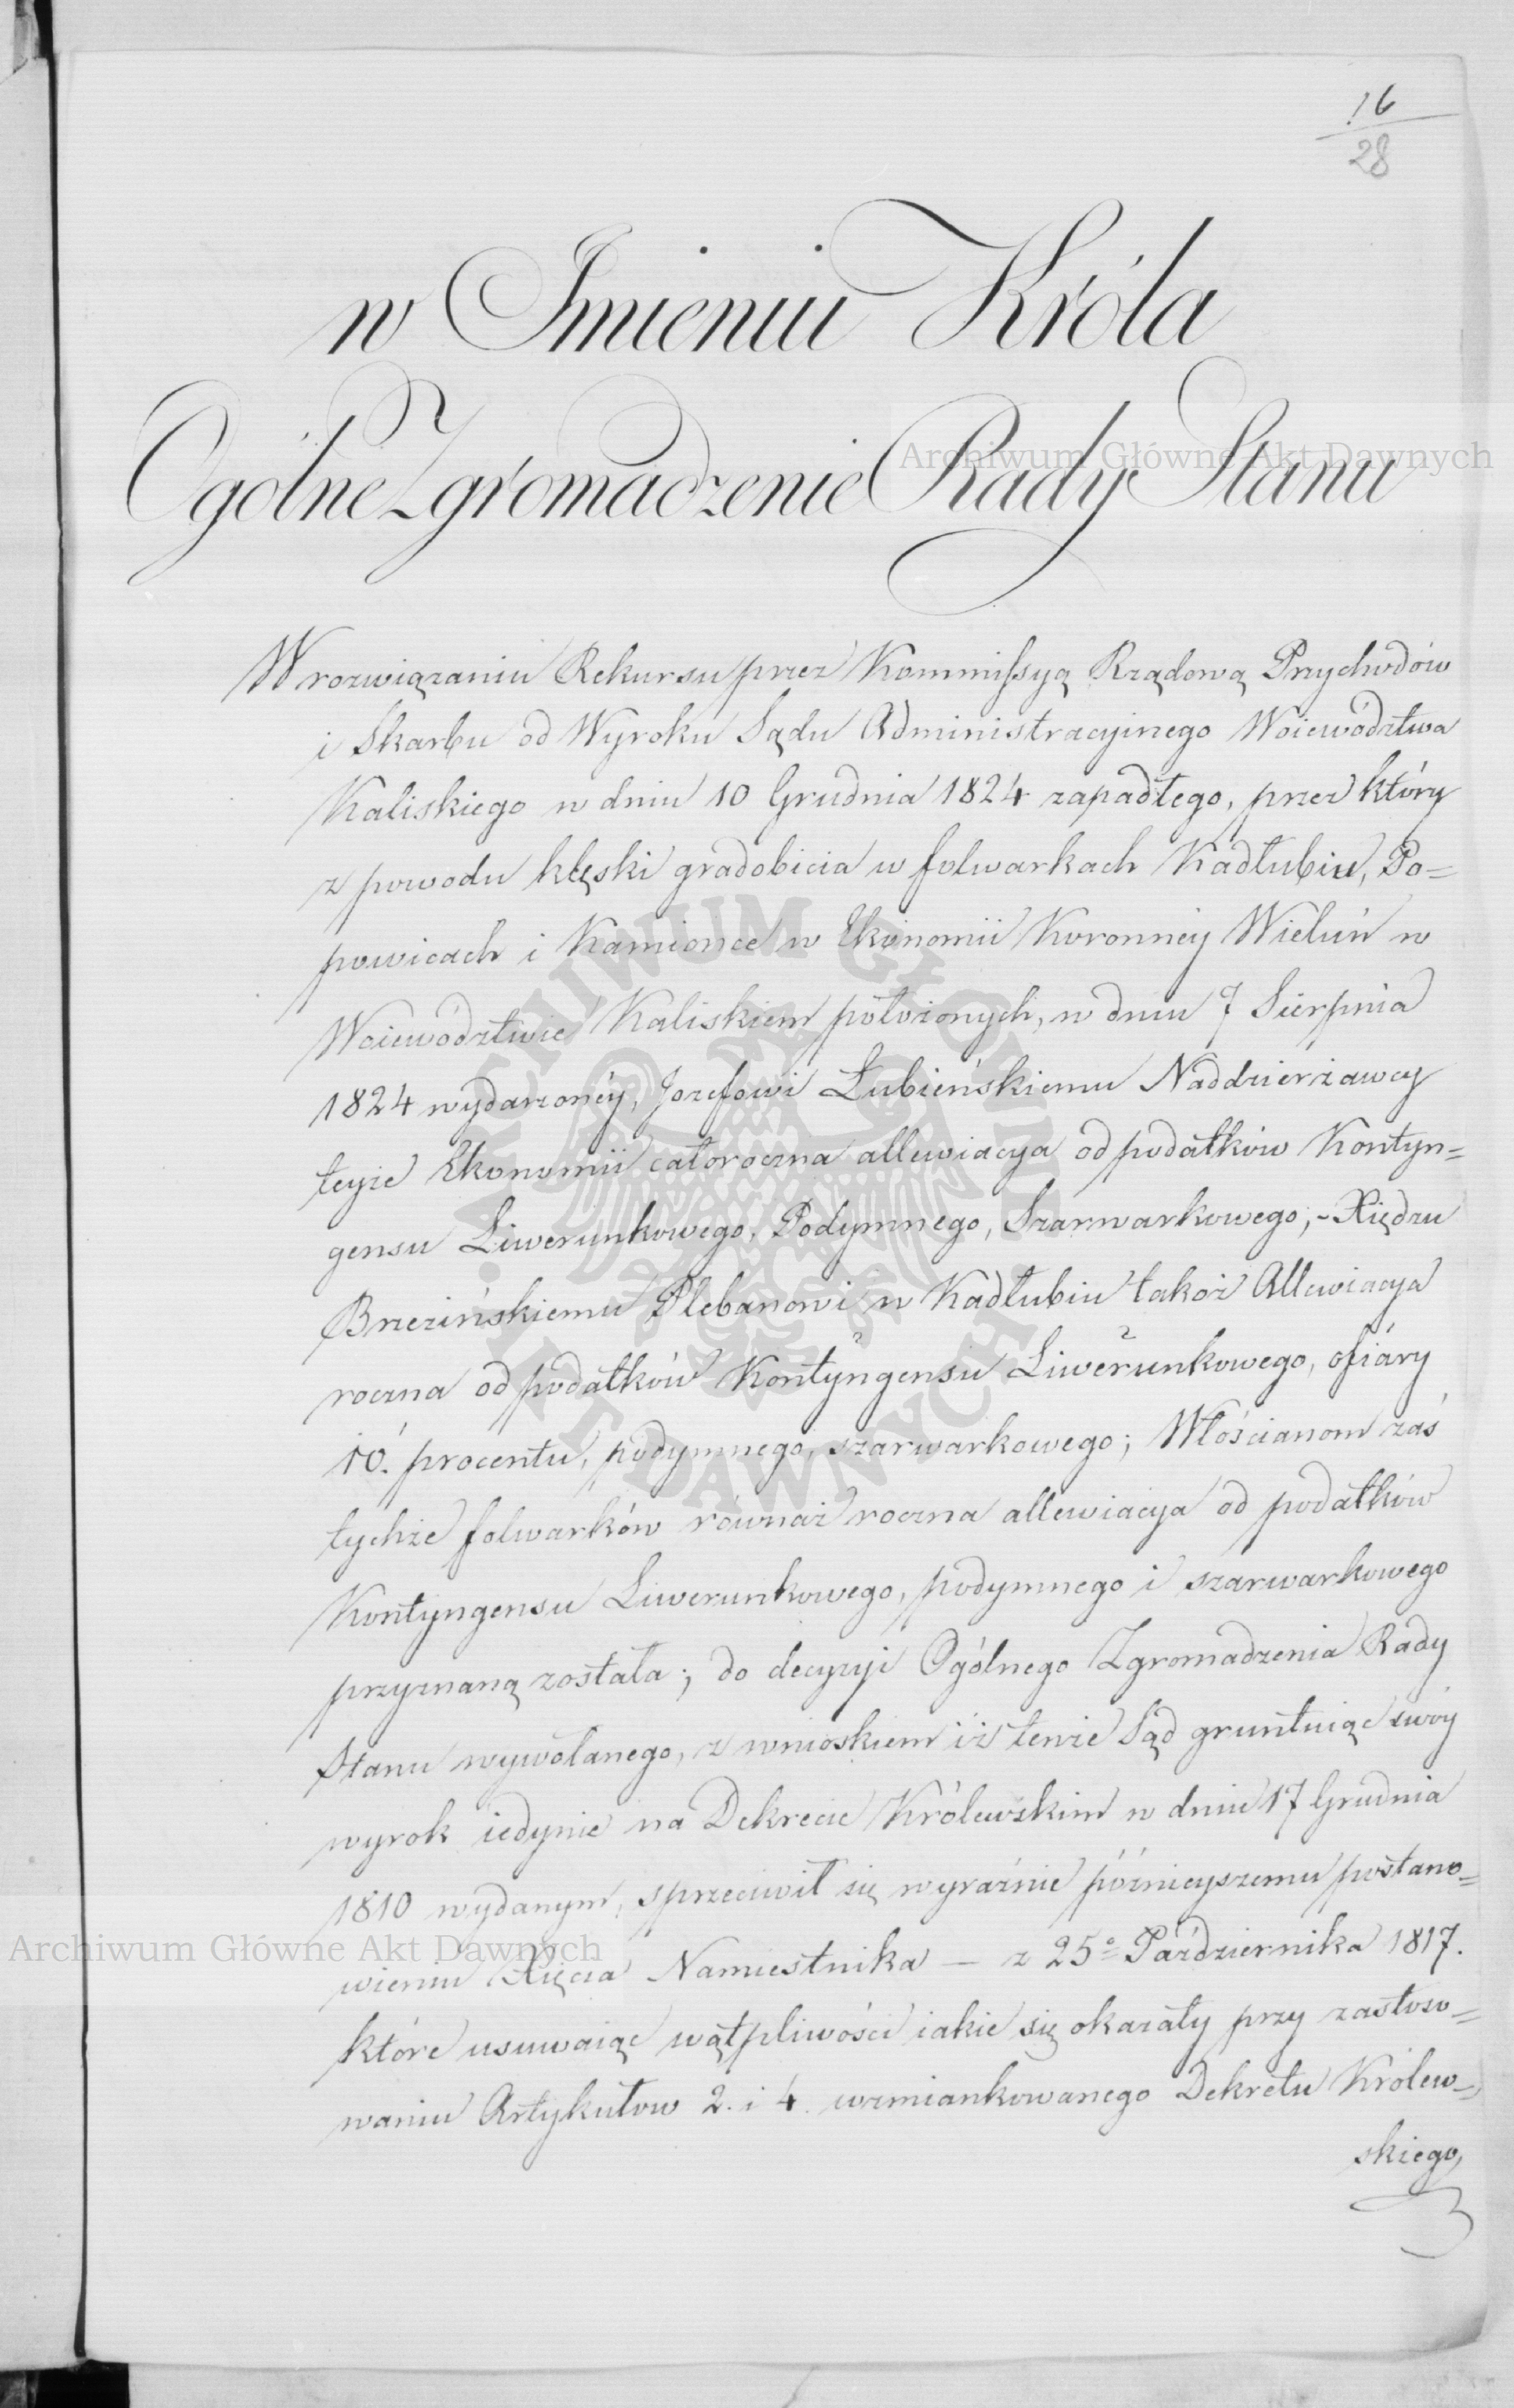 16
28
w Imieniu Króla
Ogólne Zgromadzenie Rady Stanu
Archiwum Główne Akt Dawnych
W rozwiązaniu Rekursu przez Kommissyą Rządową Przychodów
i Skarbu od Wyroku Sądu Administracyinego Woiewództwa
Kaliskiego w dniu 10 Grudnia 1824 zapadłego, przez który
z powodu klęski gradobicia w folwarkach Kadłubiu, Po=
powicach i Kamionce w Ekonomii Koronnéy Wieluń w
Woiewództwie Kaliskiem położonych, w dniu 7 Sierpnia
1824 wydarzonéy, Jozefowi Łubieńskiemu Naddzierżawcy
teyże Ekonomii całoroczna allewiacya od podatków Kontyn=
gensu Liwerunkowego, Podymnego, Szarwarkowego; - Xiędzu
Brzezińskiemu Plebanowi w Kadłubiu takoż Allewiacya
roczna od podatków Kontyngensu Liwerunkowego, ofiary
10. procentu, podymnego, szarwarkowego; Włościanom zaś
tychże folwarków równaż roczna allewiacya od podatków
Kontyngensu Liwerunkowego, podymnego i szarwarkowego
przyznaną została; do decyzyi Ogólnego Zgromadzenia Rady
Stanu wywołanego, z wnioskiem iż tenże Sąd gruntuiąc swóy
wyrok iedynie na Dekrecie Królewskim w dniu 17 Grudnia
1810 wydanym, sprzeciwił się wyraźnie póznieyszemu postano=
Archiwum Główne Akt Dawnych
wieniu Xięcia Namiestnika — z 25º Października 1817.
które usuwaiąc wątpliwości iakie się okazały przy zastoso=
waniu Artykułow 2. i 4. wzmiankowanego Dekretu Królew=
skiego,
ARCHIWUM GŁÓWNE AKT DAWNYCH